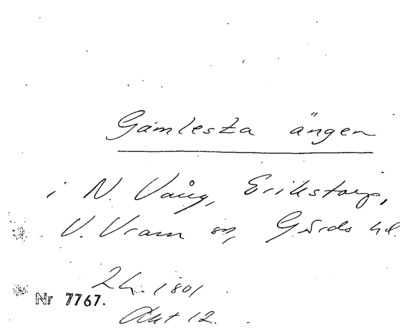 Gamlesta ängen
i N. Vång, Erikstorp,
V. Vram sn, Gärds hd.
2 h. 1801
Nr 7767.
Akt 12.